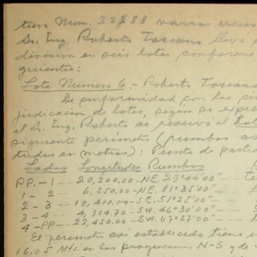 tiera Num. 22788 varias
Sr. Ing. Roberto Toscano llevó
división en seis lotes conforme
guientes:
Lote Numero 6 - Roberto Toscano
De conformidad con las
judicación de lotes, según se
el Sr. Ing. Roberto se reservó el Lote
siguiente perímetro (rumbos
tudes en metros): Punto de parti
Lados Longitudes Rumbos
PP.-1 - 20,200.00-NE. 29°44'00"
1 - 2 - 6,250.00-NE. 81°35'00"
2 - 3 - 10,400.00-SE. 51°25'00"
3 - 4 - 4,904.70-SW. 46°30'00"
4-PP - 22,450.00-SW. 67°27'00"
El perímetro así establecido tiene
16.05 Mts. en las proyecciones N-S y de